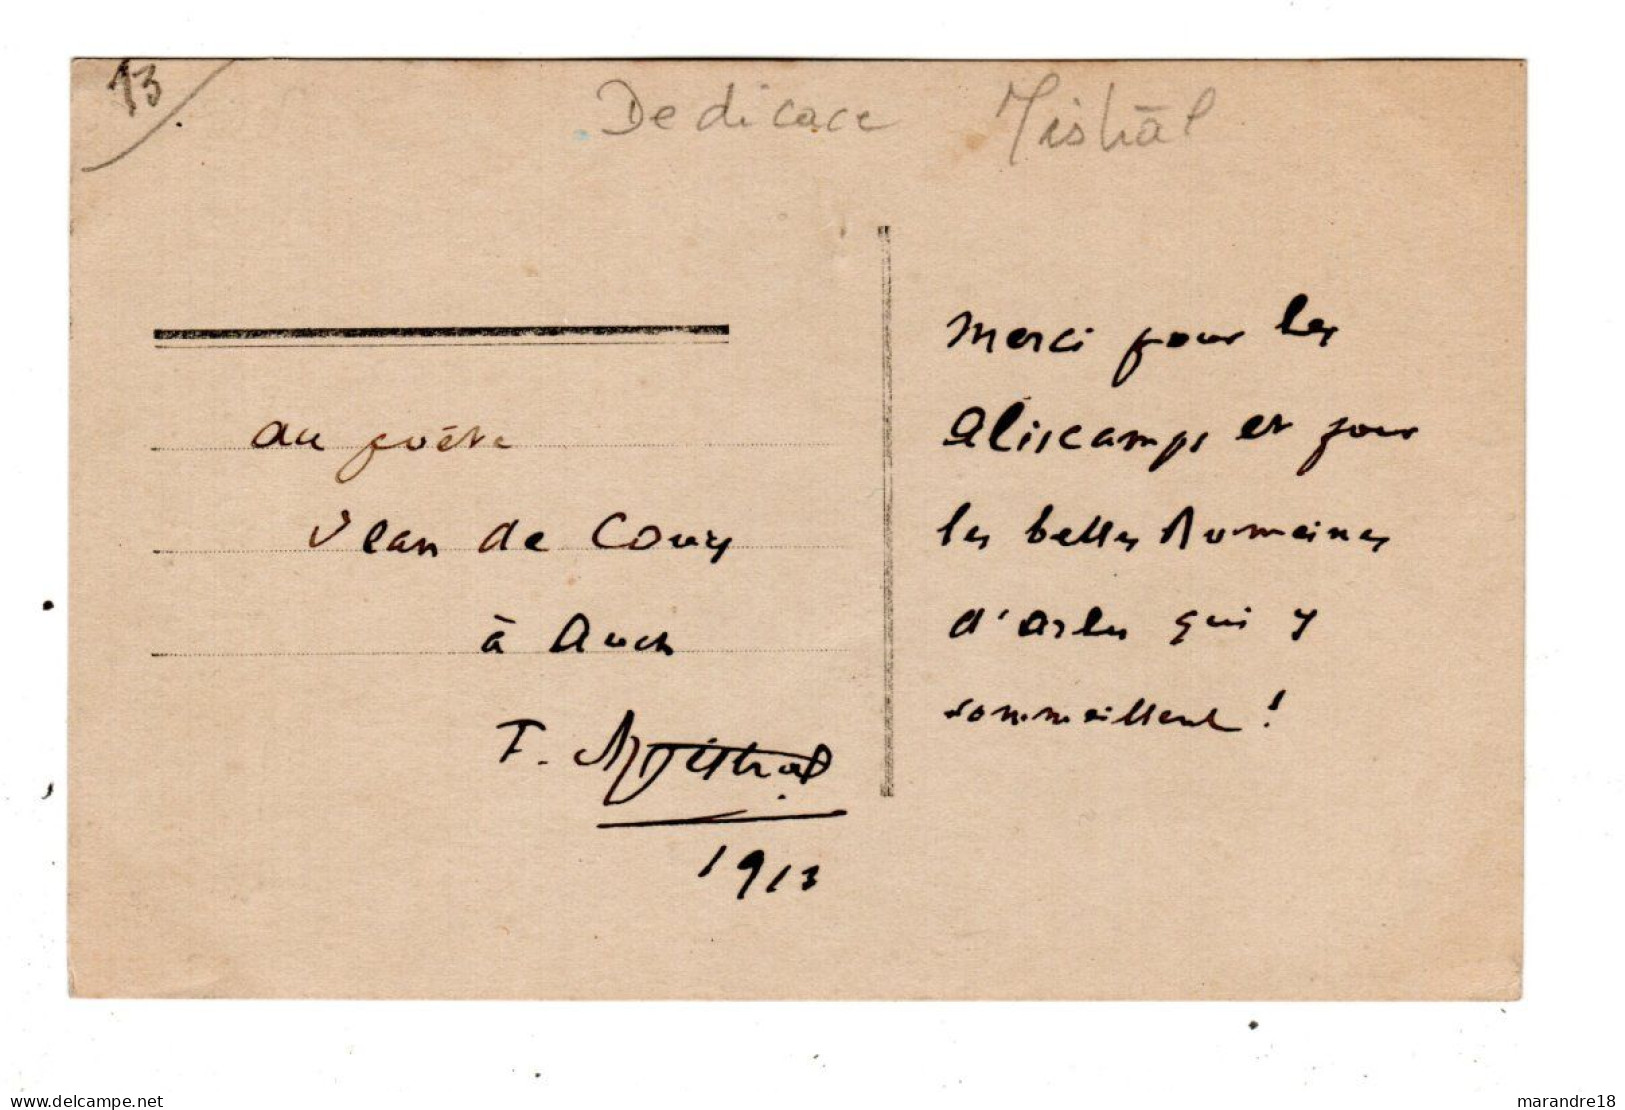 13
Dedicace Mistral
au poète
Jean de
à Auch
F. Mistral
1913
Merci pour les
Aliscamps et pour
les belles Romaines
d'Arles qui y
sommeillent !
www.delcampe.net
marandre18